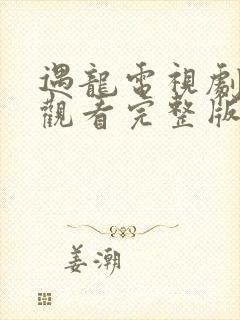 遇龍電視劇
觀看完整版
姜潮